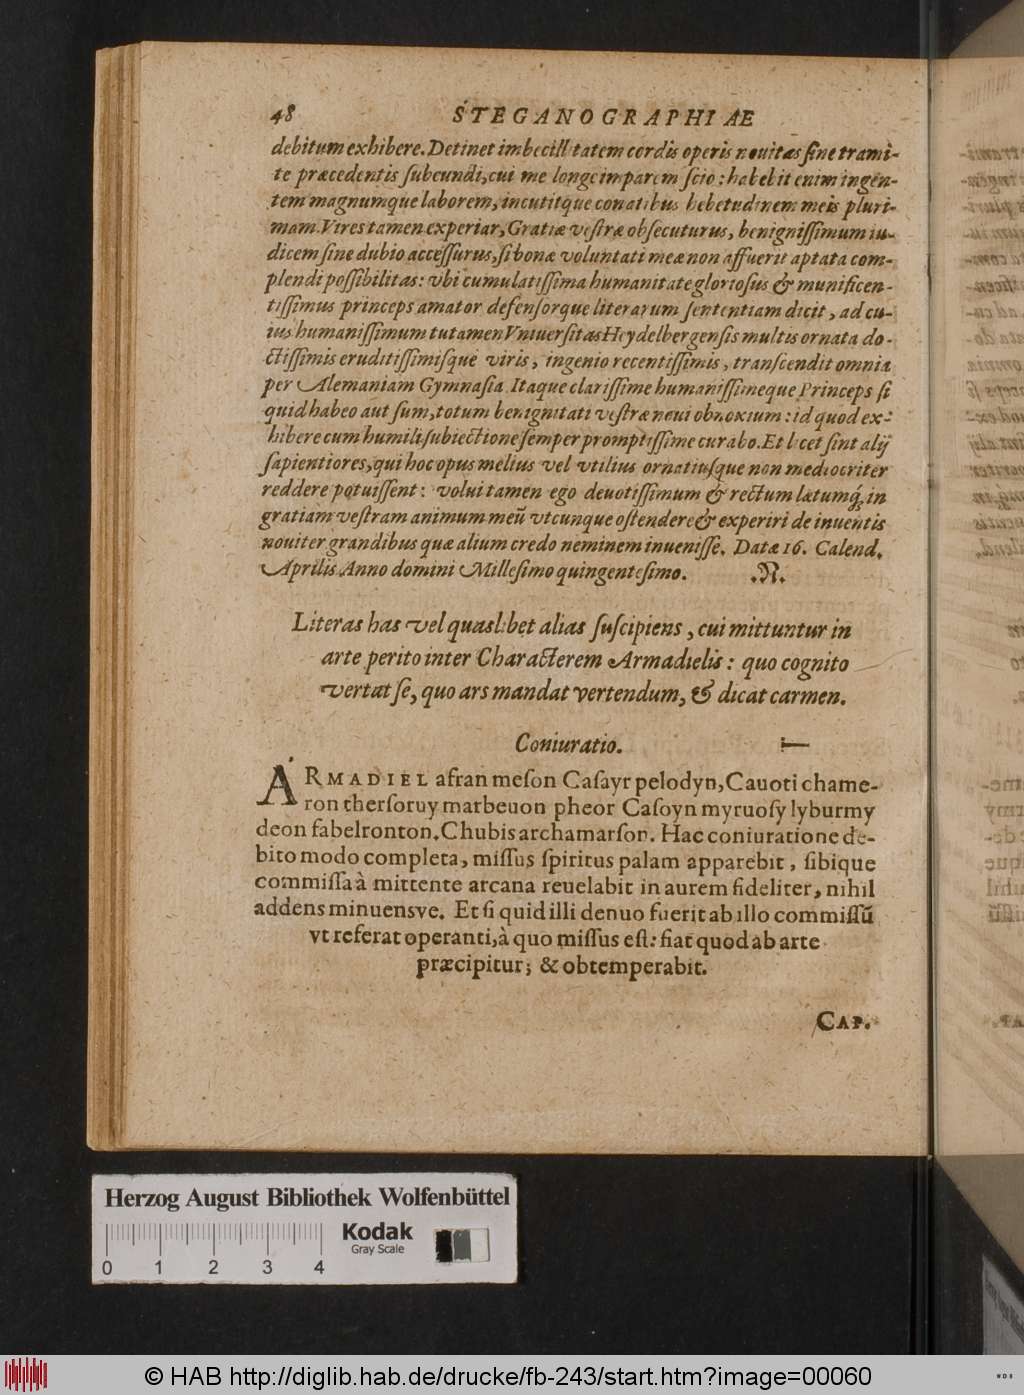 48 STEGANOGRAPHIAE
debitum exhibere. Detinet imbecillitatem cordis operis nouitas sine trami-
te præcedentis subeundi, cui me longe imparem scio: habebit enim ingẽ-
tem magnumque laborem, incutitque conatibus hebetudinem meis pluri-
mam. Vires tamen experiar, Gratiæ vestræ obsecuturus, benignissimum iu-
dicem sine dubio accessurus, si bonæ voluntati meæ non affuerit aptata com-
plendi possibilitas: vbi cumulatissima humanitate gloriosus & munificen-
tissimus princeps amator defensorque literarum sententiam dicit, ad cu-
ius humanissimum tutamen Vniuersitas Heydelbergensis multis ornata do-
ctissimis eruditissimisque viris, ingenio recentissimis, transcendit omnia
per Alemaniam Gymnasia Itaque clarissime humanissimeque Princeps si
quid habeo aut sum, totum benignitati vestræ noui obnoxium: id quod ex-
hibere cum humili subiectione semper promptissime curabo. Et licet sint alij
sapientiores, qui hoc opus melius vel vtilius ornatiusque non mediocriter
reddere potuissent: volui tamen ego deuotissimum & rectum lætumq́ in
gratiam vestram animum meũ vtcunque ostendere & experiri de inuentis
nouiter grandibus quæ alium credo neminem inuenisse. Datæ 16. Calend.
Aprilis Anno domini Millesimo quingentesimo. .N.
Literas has vel quaslibet alias suscipiens, cui mittuntur in
arte perito inter Characterem Armadielis: quo cognito
vertat se, quo ars mandat vertendum, & dicat carmen.
Coniuratio.
ARMADIEL afran meson Casayr pelodyn, Cauoti chame-
ron thersoruy marbeuon pheor Casoyn myruosy lyburmy
deon fabelronton. Chubis archamarsor. Hac coniuratione de-
bito modo completa, missus spiritus palam apparebit, sibique
commissa à mittente arcana reuelabit in aurem fideliter, nihil
addens minuensve. Et si quid illi denuo fuerit ab illo commissũ
vt referat operanti, à quo missus est: fiat quod ab arte
præcipitur; & obtemperabit.
CAP.
Herzog August Bibliothek Wolfenbüttel
Kodak
Gray Scale
0 1 2 3 4
© HAB http://diglib.hab.de/drucke/fb-243/start.htm?image=00060